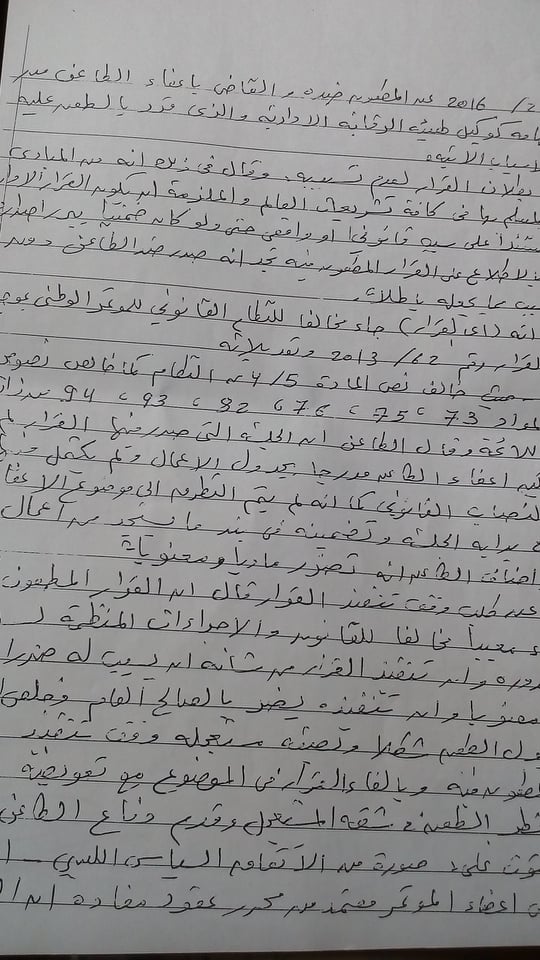 /2 2016 عن المطعون ضده والقاضي باعفاء الطاعن من
كوكيل لهيئة الرقابة الادارية والذي قرر بالطعن عليه
للاسباب الاتية
بطلان القرار لعدم تسبيبه وقال في ذلك انه من المبادئ
المسلم بها في كافة تشريعات العالم والملزمة ان يكون القرار الادا
مستندا على سبب قانوني او واقعي حتى ولو كان ضمنيا
بالاطلاع على القرار المطعون فيه نجد انه صدر ضد الطاعن دون
سبب مما يجعله باطلا
انه (اي القرار) جاء مخالفا للنظام القانوني للموتمر الوطني
القرار رقم 62/2013 وتعديلاته
حيث خالف نص المادة 4/5 من النظام كما خالف نصوص
المواد 73، 75، 76، 92، 93، 94 من ذات
اللائحة وقال الطاعن ان الجلسة التي صدر منها القرار لم
يكن اعفاء الطاعن مدرجا بجدول الاعمال ولم يكتمل
النصاب القانوني كما انه لم يتم التطرق الى موضوع الاعفا
بداية الجلسة وتضمينه في بند ما يستجد من اعمال
واضاف الطاعن انه تضرر ماديا ومعنويا
عن طلب وقف تنفيذ القرار قال ان القرار المطعون
معيبا مخالفا للقانون والاجراءات المنظمة
وان تنفيذ القرار من شأنه ان يسبب له ضررا
معنويا وان تنفيذه يضر بالصالح العام وخلص
الطعن شكلا وبصفة مستعجلة وقف تنفيذ
المطعون فيه وبالغاء القرار في الموضوع مع تعويضه
نظر الطعن في شقه المستعجل وقدم دفاع الطاعن
على صورة من الاتفاق السياسي الليبي
اعضاء الموتمر معتمد من محرر عقود مفاده ان